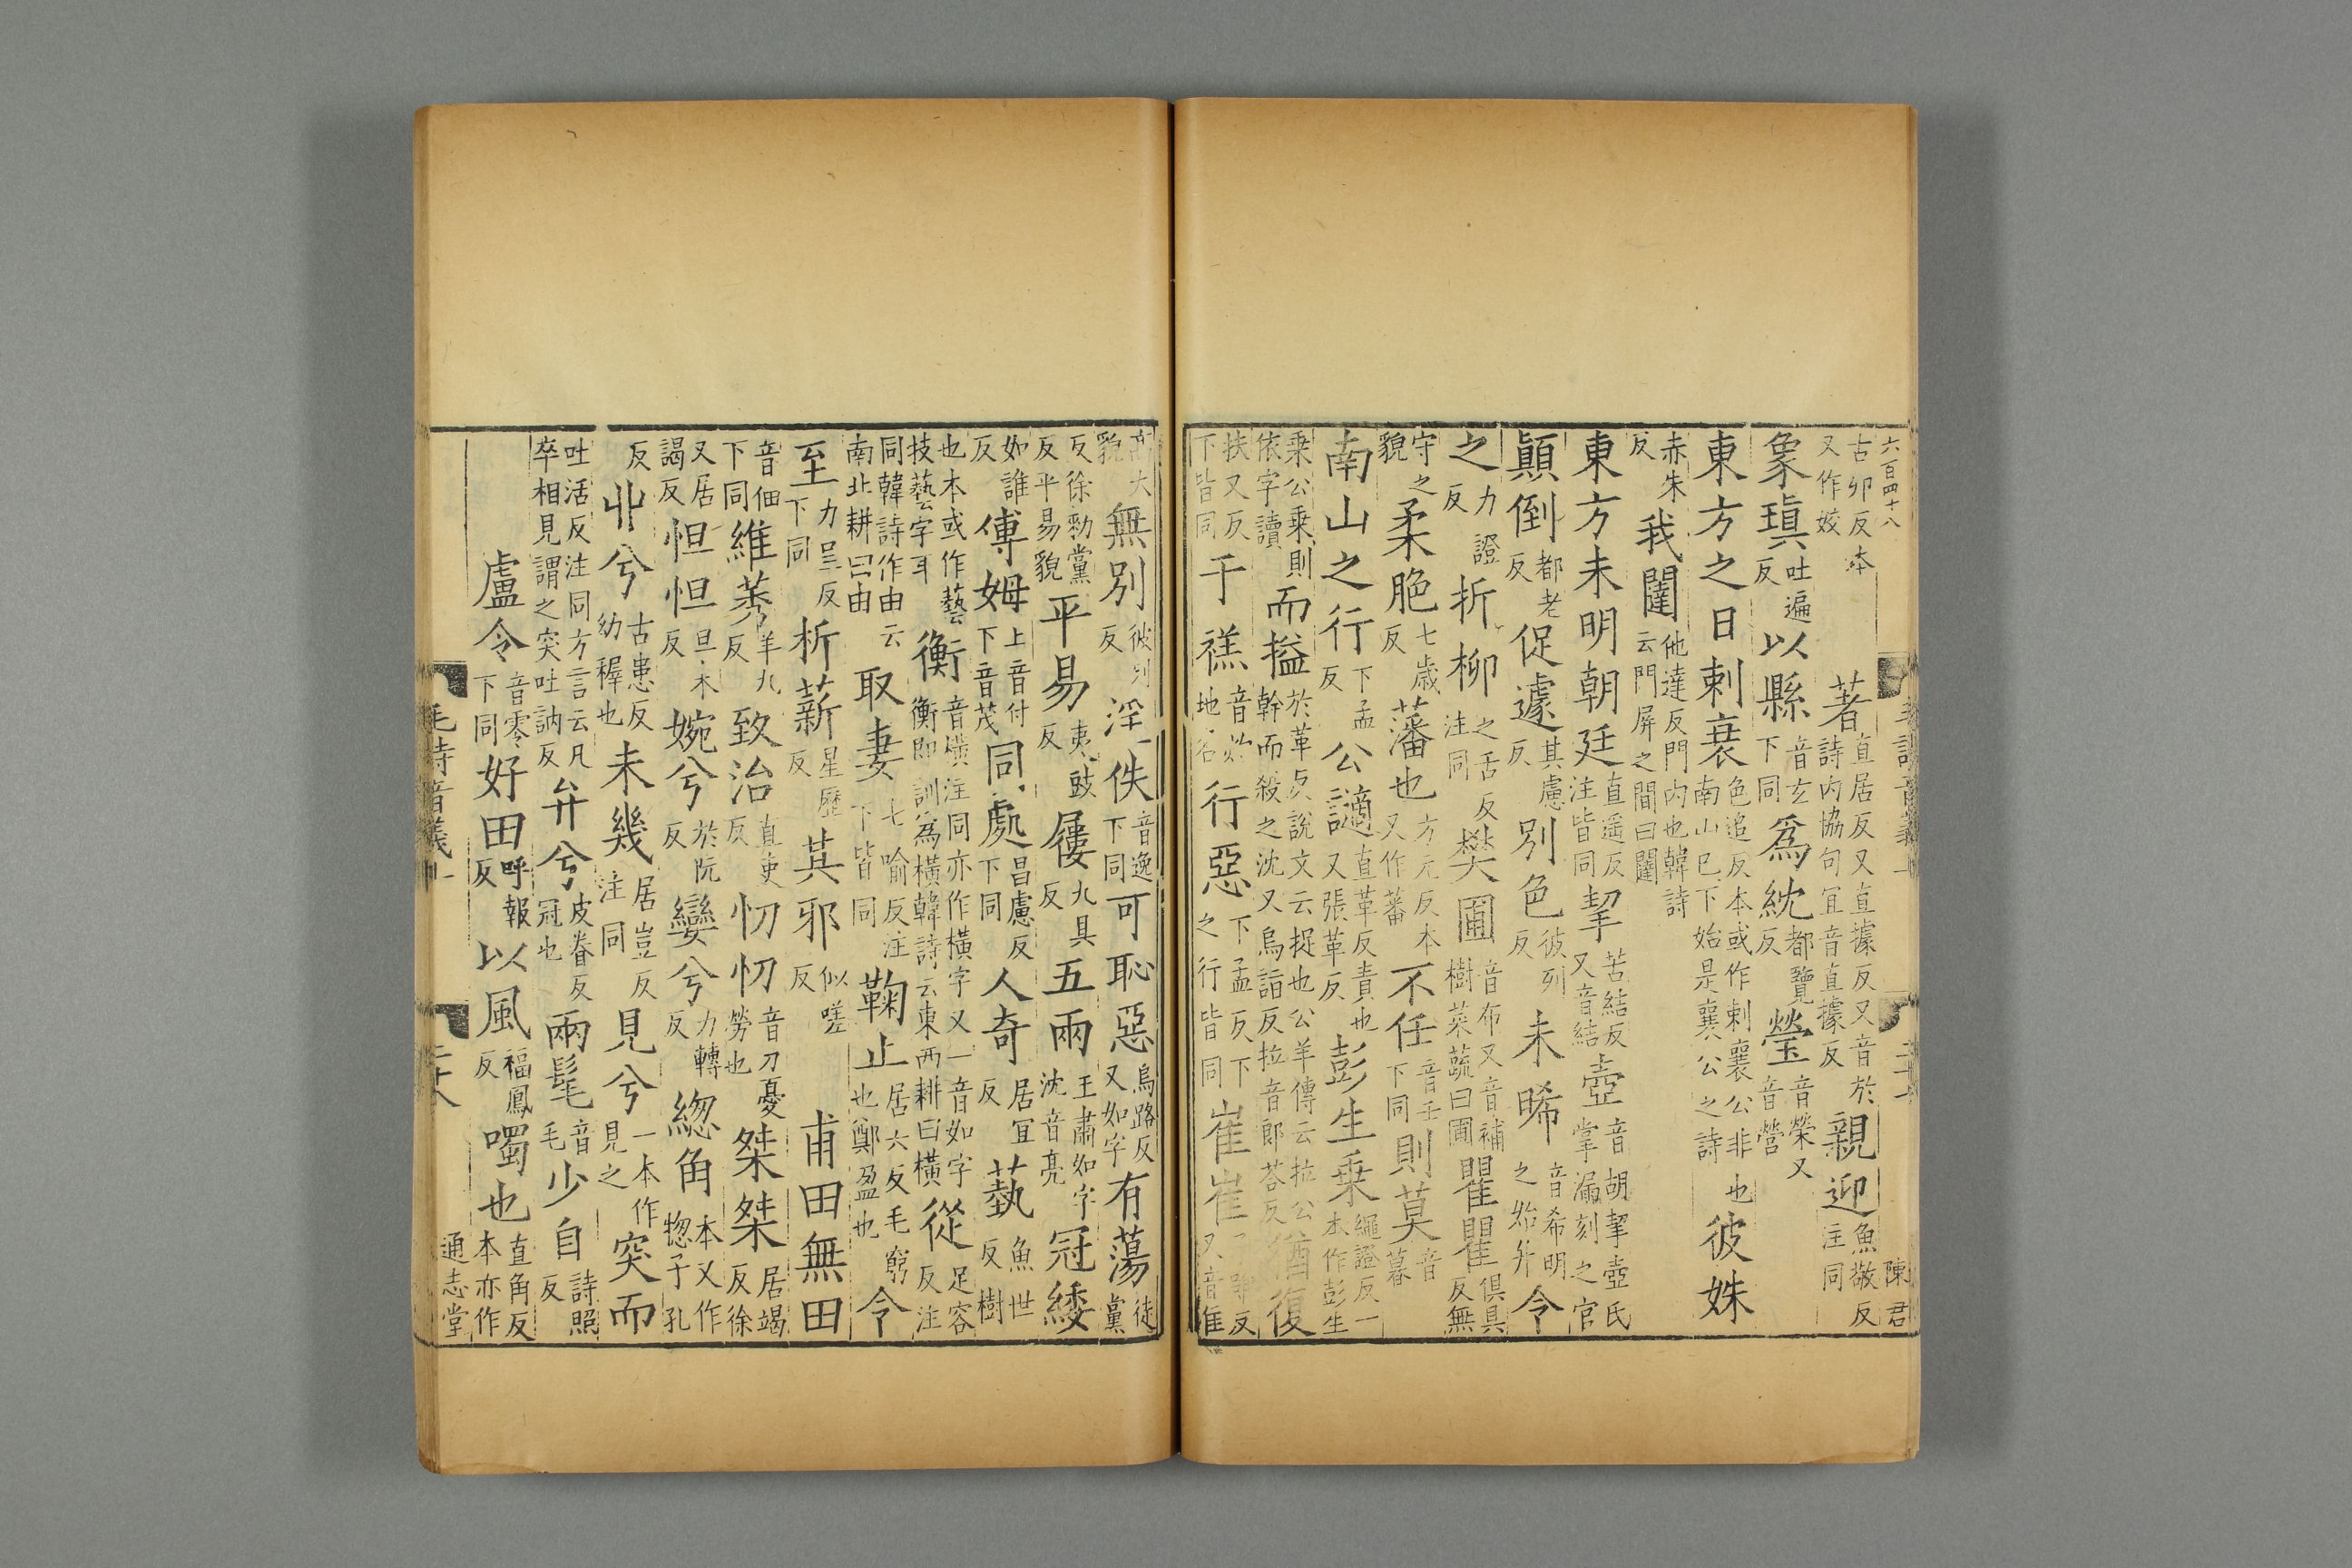 六百四十八 毛詩音義上 二十七 陳君
古卯反本又作姣 著直居反又直據反又音於詩内協句宜音直據反 親迎魚敬反注同
象瑱吐遍反 以縣音玄下同 爲紞都覽反 瑩音榮又音營
東方之日刺衰色追反本或作刺襄公非也南山已下始是襄公之詩 彼姝
赤朱反 我闥他達反門内也韓詩云門屏之間曰闥
東方未明朝廷直遥反注皆同 挈苦結反又音結 壺音胡挈壺氏掌漏刻之官
顛倒都老反 促遽其慮反 别色彼列反 未晞音希明之始升 令
之力證反 折柳之舌反注同 樊圃音布又音補樹菜蔬曰圃 瞿瞿俱具反無
守之貌 柔脆七歲反 藩也方元反本又作蕃 不任音壬下同 則莫音暮
南山之行下孟反 公讁直革反責也又張革反 彭生乗繩證反一本作彭生
乗公乗則依字讀 而搤於革反說文云捉也公羊傳云拉公幹而殺之沈又烏詣反拉音郎荅反 猶復
扶又反下皆同 于禚音灼地名 行惡下孟反下之行皆同 崔崔反又音隹
高大貌 無别彼列反 淫佚音逸下同 可恥惡烏路反又如字 有蕩徒黨
反徐勑黨反平易貌 平易夷豉反 屨九具反 五兩王肅如字沈音亮 冠緌
如誰反 傅姆上音付下音茂 同處昌慮反下同 人奇居宜反 蓺魚世反樹
也本或作藝技藝字耳 衡音横注同亦作横字又一音如字衡即訓爲横韓詩云東西耕曰横 從足容反注
同韓詩作由云南北耕曰由 取妻七喻反注下皆同 鞠止居六反毛窮也鄭盈也 令
至力呈反下同 析薪星歷反 其邪似嗟反 甫田無田
音佃下同 維莠羊九反 致治直吏反 忉忉音刀憂勞也 桀桀居竭反徐
又居謁反 怛怛旦末反 婉兮於阮反 孌兮力轉反 緫角本又作惣子孔
反 丱兮古患反幼稺也 未幾居豈反注同 見兮一本作見之 突而
吐活反注同方言云凡卒相見謂之突吐訥反 弁兮皮眷反冠也 兩髦音毛 少自詩照反
盧令音零下同 好田呼報反 以風福鳳反 噣也直角反本亦作
毛詩音義上 二十八 通志堂